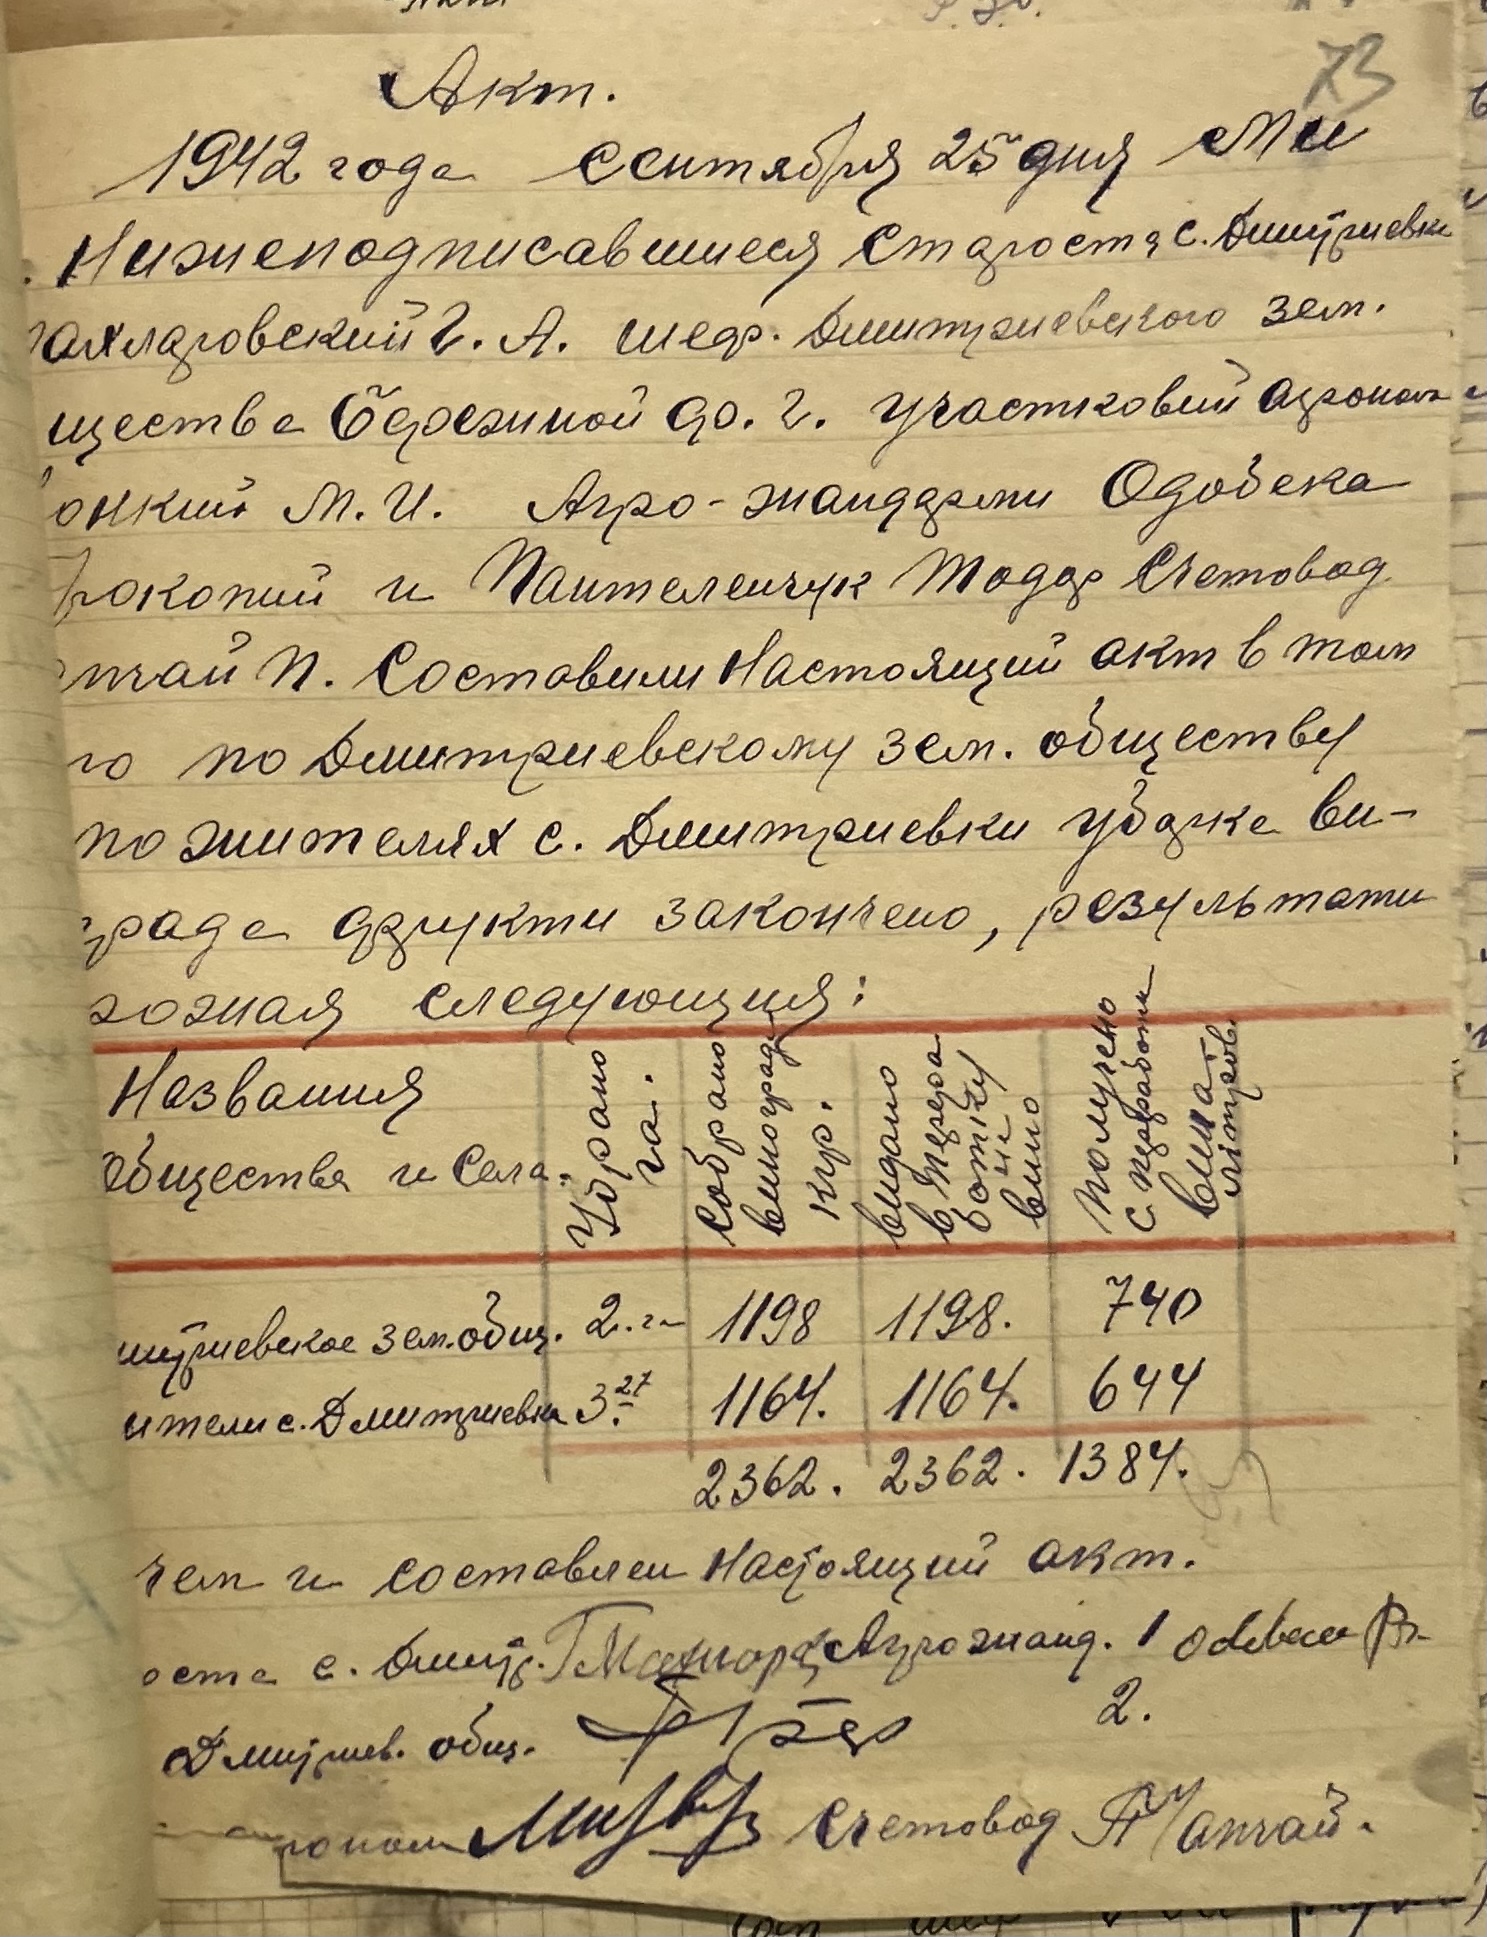 73
Акт.
1942 года Сентября 25 дня Ми
Нижеподписавшиеся Староста с. Дмитриевки
Г. А. шеф. Дмитриевского зем.
ществa Бережной Ф. Г. участковий агроном
М. И. Агро-жандарми Одобека
рокопий и Пантеленчук Тодор Счетовод
П. Составили Настоящий акт в том
то по Дмитриевскому зем. обществу
по жителях с. Дмитриевки убарке ви-
града закончено, результати
рожая следующия:
Названия
Общества и Села.
Убрано га.
Собрано винограда кгр.
видано в перера ботку на вино
Получено с переработки вина- літров.
митриевское зем. общ. 2. га 1198 1198. 740
ители с. Дмитриевки 3.27 1164. 1164. 644
2362. 2362. 1384.
чем и составлен Настоящий акт.
оста с. Дмитр. Агрожанд. 1
Дмитриев. общ. 2.
роном Счетовод